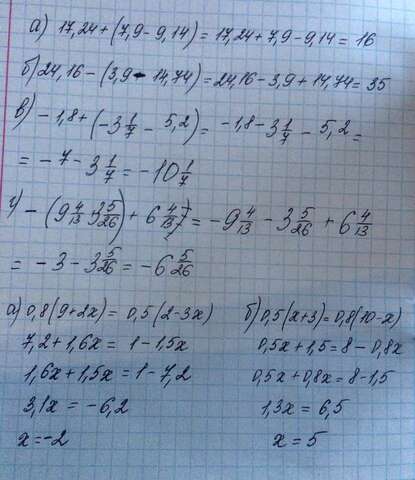 а) 17,24+(7,9-9,14)=17,24+7,9-9,14=16
б) 24,16-(3,9-14,74)=24,16-3,9+14,74=35
в) -1,8+(-3 1/7 - 5,2)= -1,8-3 1/7 - 5,2=
= -7-3 1/7 = -10 1/7
г) -(9 4/13 3 5/26)+6 4/13 = -9 4/13 - 3 5/26 + 6 4/13
= -3-3 5/26 = -6 5/26
а) 0,8(9+2x)= 0,5(2-3x)
7,2+1,6x= 1-1,5x
1,6x+1,5x=1-7,2
3,1x = -6,2
x=-2
б) 0,5(x+3)=0,8(10-x)
0,5x+1,5=8-0,8x
0,5x+0,8x=8-1,5
1,3x = 6,5
x = 5